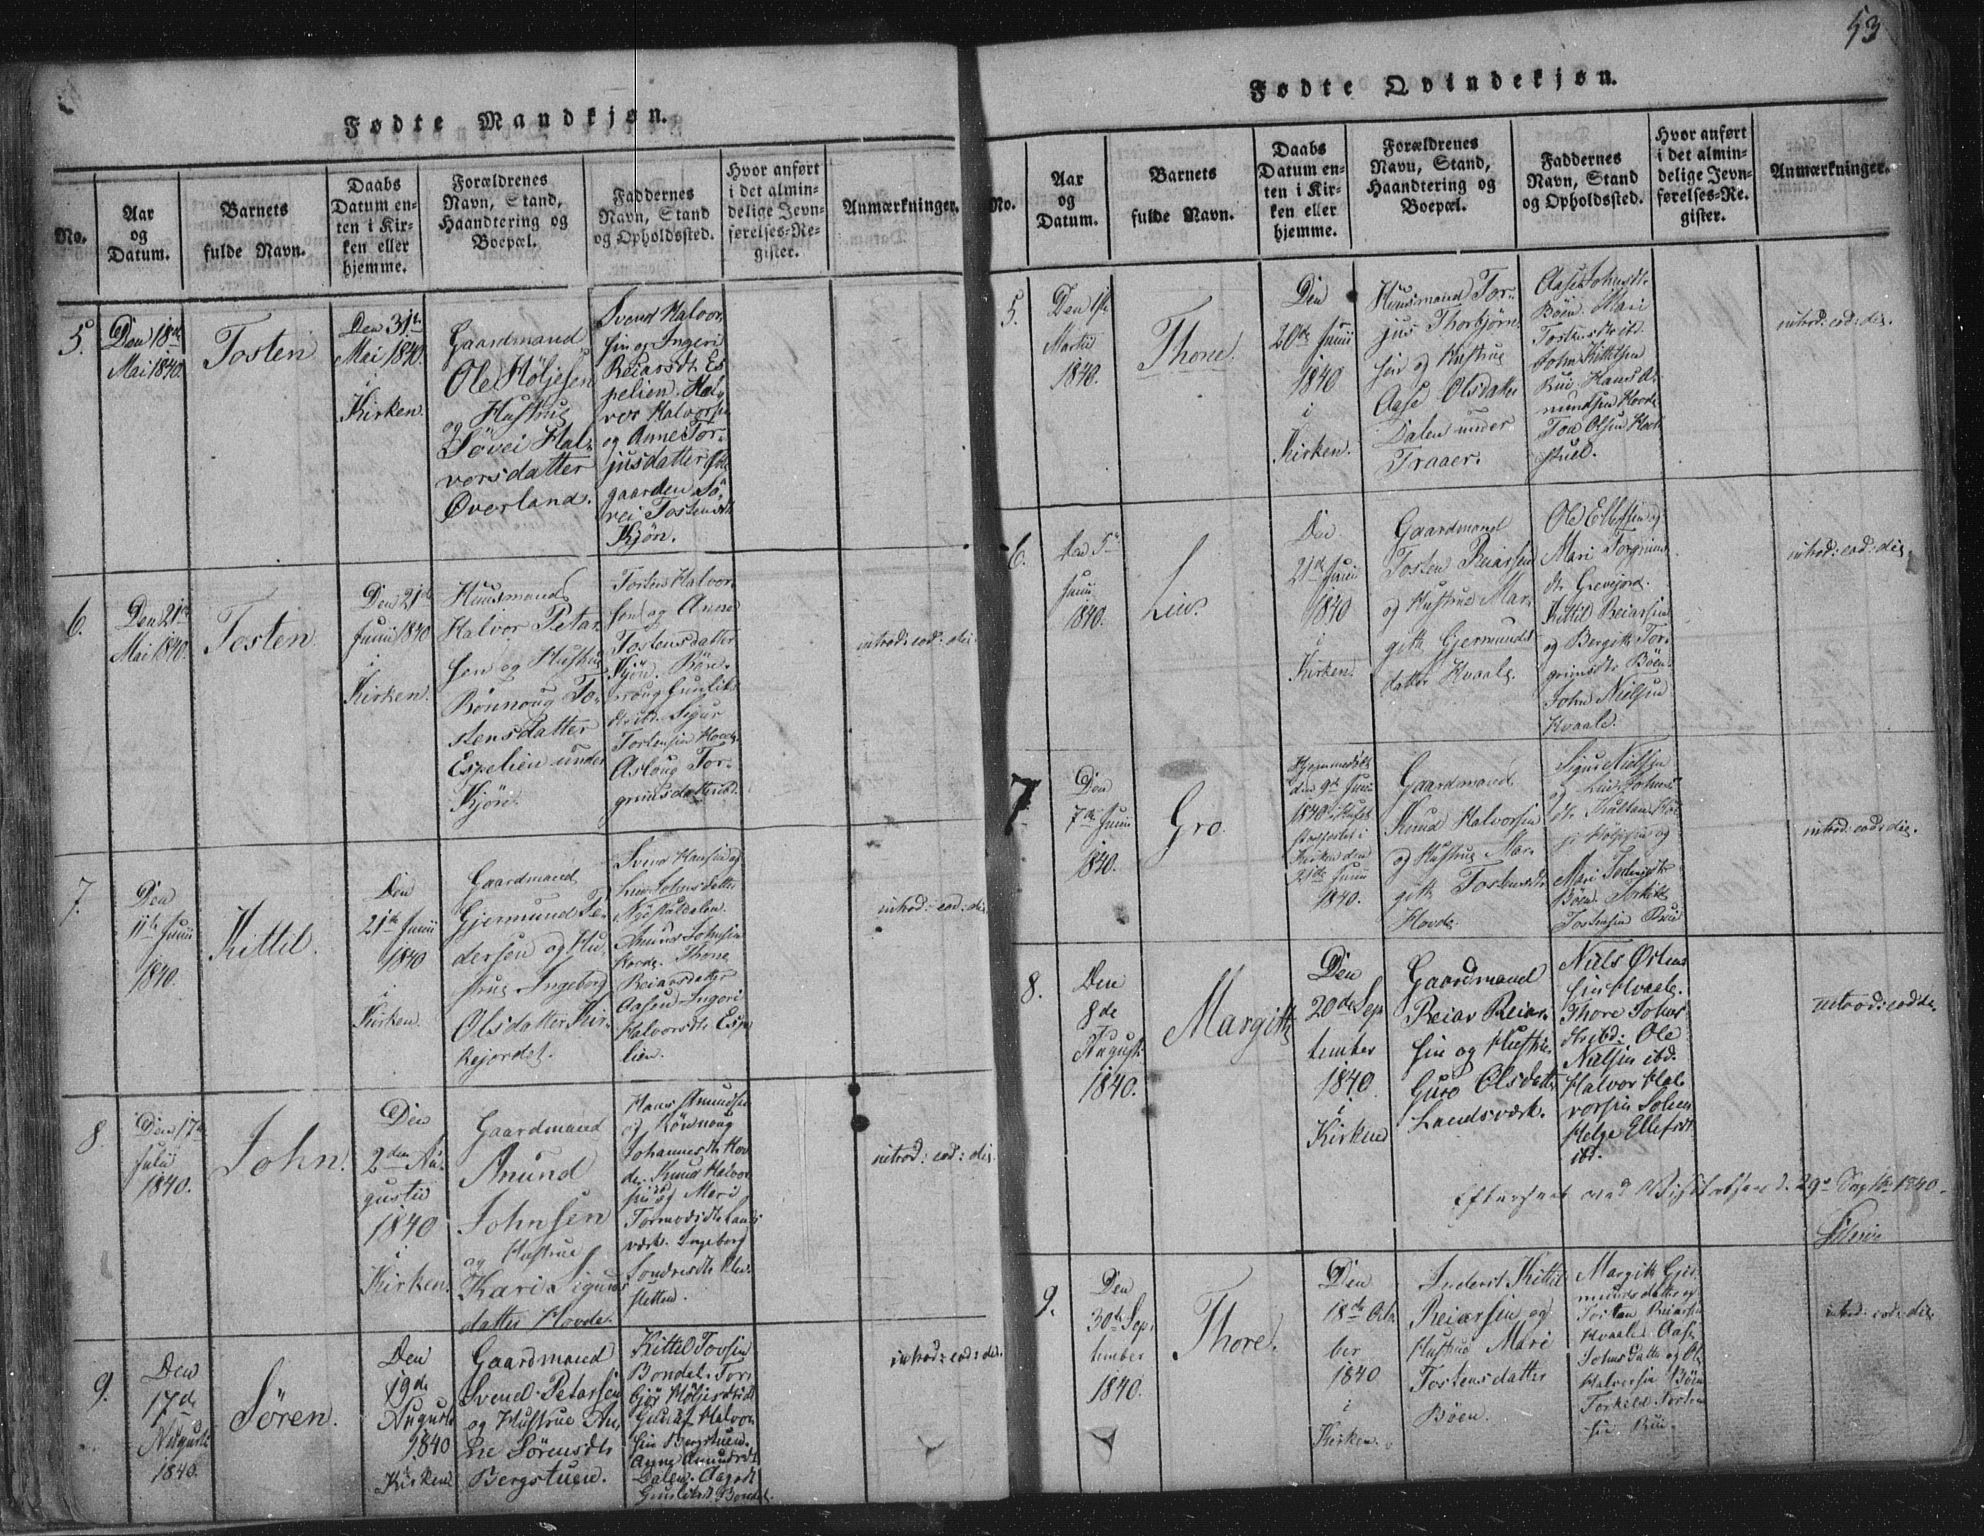 53
Fødte Mandkjøn.
No.
Aar
og
Datum.
Barnets
fulde Navn.
Daabs
Datum en-
ten i Kir-
ken eller
hjemme.
Forældrenes
Navn, Stand,
Haandtering og
Boepæl.
Faddernes
Navn, Stand
og Opholdssted.
Hvor anført
i det almin-
delige Jevn-
førelses-Re-
gister.
Anmærkninger.
5.
Den 18de
Mai 1840.
Tosten
Den 31te
Mai 1840.
i
Kirken.
Gaardmand
Ole Høljesen
og Hustrue
Søvei Hal-
vorsdatter
Øverland.
Svend Halvor-
sen og Ingeri
Reiarsdtr Es-
pelien. Hal-
vor Halvorsen
og Anne Tor-
jusdatter
gaarden Sø-
vei Tostensdtr
Kjøn.
6.
Den 21de
Mai 1840.
Tosten
Den 21de
Junii 1840
i
Kirken.
Huusmand
Halvor Petar-
sen og Hustrue
Rønnoug To-
stensdatter
Espelien under
Kjøn.
Tosten Halvor-
sen og Anne
Tostensdatter
Kjøn. Røn-
noug Gunliks-
dtr ibd. Sigur
Tostensen Hovde
Aslaug Tor-
grimsdatter ibd.
introd: eod: die.
7.
Den
11te Junii
1840.
Kittil.
Den
21de Junii
1840
i
Kirken.
Gaardmand
Gjermund Pe-
dersen og Hu-
strue Ingeborg
Olsdatter Kir-
kejordet.
Svend Hansen og
Liv Johnsdatter
Nystuldalen.
Anund Johnsen
Hovde. Thone
Reiarsdatter
Aasen. Ingeri
Halvorsdtr Espe-
lien.
introd: eod: die
8.
Den 17de
Julii
1840.
John.
Den
2den Au-
gustii
1840
i
Kirken.
Gaardmand
Anund
Johnsen
og Hustrue
Kari Sigurds-
datter Hovde.
Hans Amundsen
og Rønnoug
Johannesdtr Hov-
de. Knud Halvor-
sen og Mari
Tormodsdtr Lands-
værk. Ingeborg
Sondresdtr Klev-
stetten.
introd: eod: die.
9.
Den
17de
Augustii
1840.
Søren.
Den
19de
Augustii
1840
i
Kirken
Gaardmand
Svend Petarsen
og Hustrue An-
ne Sørensdtr
Bergstuen.
Kittel Tovsen
Bondal. Tor-
bjør Høljesdtr
Gunuf Halvor-
sen Bergstuen.
Anne Amundsdtr
Dalen. Aagodt
Gunliksdtr Bondal.
introd: eod: die.
Fødte Qvindekjøn.
No.
Aar
og
Datum.
Barnets
fulde Navn.
Daabs
Datum en-
ten i Kir-
ken eller
hjemme.
Forældrenes
Navn, Stand,
Haandtering og
Boepæl.
Faddernes
Navn, Stand
og Opholdssted.
Hvor anført
i det almin-
delige Jevn-
førelses-Re-
gister.
Anmærkninger.
5.
Den 1ste
Martii
1840.
Thone.
Den
20de Junii
1840
i
Kirken.
Huusmand Tor-
jus Thorbjørn-
sen og Hustrue
Aase Olsdatter
Dalen under
Traaer.
Aase Johnsdtr
Bøen. Mari
Tostensdtr ibd.
John Kittilsen
Rue Hans A-
mundsen Hovde
Tov Olsen Hovde-
stuel.
introd: eod: die.
6.
Den 5te
Junii
1840.
Liv.
Den
21de Junii
1840
i
Kirken.
Gaardmand
Tosten Reiarsen
og Hustrue Mar-
gith Gjermunds-
datter Hvaale.
Ole Ellefsen og
Mari Torgrims-
dtr Grevjord.
Kittil Reiarsen
og Bergith Tor-
grimsdtr Bøen.
John Nielsen
Hvaale.
introd: eod: die.
7
Den
7de Junii
1840.
Gro.
Hjemmedøbt
den 9de Junii
1840.
stadfæstet i
Kirken den
21de Junii
1840.
Gaardmand
Knud Halvorsen
og Hustrue Mar-
gith Tostensdtr
Hovde.
Sigur Nielsen
og Liv Johns-
dtr
og
Mari Tostensdtr
Bøen. Torkild
Tostensen Rue
introd: eod: die.
8.
Den
8de
August
1840.
Margith
Den
20de Sep-
tember
1840.
i
Kirken
Gaardmand
Reiar Reiar-
sen og Hustrue
Guro Olsdatter
Landsværk.
Niels Østens-
sen Hvaale.
Thore Johns-
dtr ibd. Ole
Nielsen ibd.
Halvor Hal-
vorsen Solem
Helge Ellefsdtr
ibd.
introd: eod: die.
Efterseet ved Visitatsen d. 29de Septbr 1840.
9.
Den
30te Sep-
tember
1840.
Thore.
Den
18de Octo-
ber
1840
i
Kirken.
Inderst Kittil
Reiarsen og
Hustrue Mari
Tostensdatter
Bøen.
Margith Gjer-
mundsdatter og
Tosten Reiarsen
Hvaale. Aase
Johnsdatter og Ole
Halvorsen Bøen
Torkild Tosten-
sen Rue.
introd: eod: die.